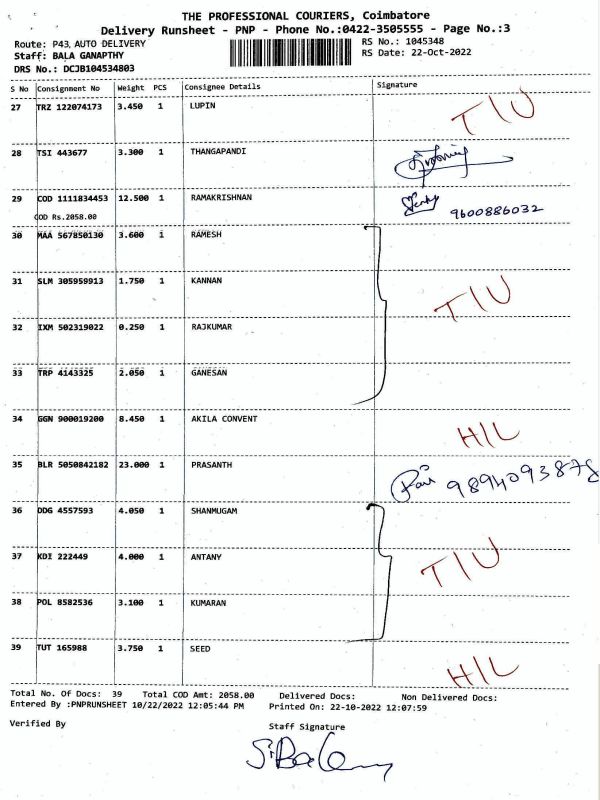 THE PROFESSIONAL COURIERS, Coimbatore
Delivery Runsheet - PNP - Phone No.:0422-3505555 - Page No.:3
Route: P43, AUTO DELIVERY
RS No.: 1045348
Staff: BALA GANAPTHY
RS Date: 22-Oct-2022
DRS No.: DCJB104534803
S No Consignment No Weight PCS Consignee Details Signature
27 TRZ 122074173 3.450 1 LUPIN T/U
28 TSI 443677 3.300 1 THANGAPANDI
29 COD 1111834453 12.500 1 RAMAKRISHNAN
COD Rs.2058.00 9600886032
30 MAA 567850130 3.600 1 RAMESH
31 SLM 305959913 1.750 1 KANNAN T/U
32 IXM 502319022 0.250 1 RAJKUMAR
33 TRP 4143325 2.050 1 GANESAN
34 GGN 900019200 8.450 1 AKILA CONVENT H/L
35 BLR 5050842182 23.000 1 PRASANTH 9894093878
36 DDG 4557593 4.050 1 SHANMUGAM
37 KDI 222449 4.000 1 ANTANY T/U
38 POL 8582536 3.100 1 KUMARAN
39 TUT 165988 3.750 1 SEED H/L
Total No. Of Docs: 39 Total COD Amt: 2058.00 Delivered Docs: Non Delivered Docs:
Entered By :PNPRUNSHEET 10/22/2022 12:05:44 PM Printed On: 22-10-2022 12:07:59
Verified By Staff Signature